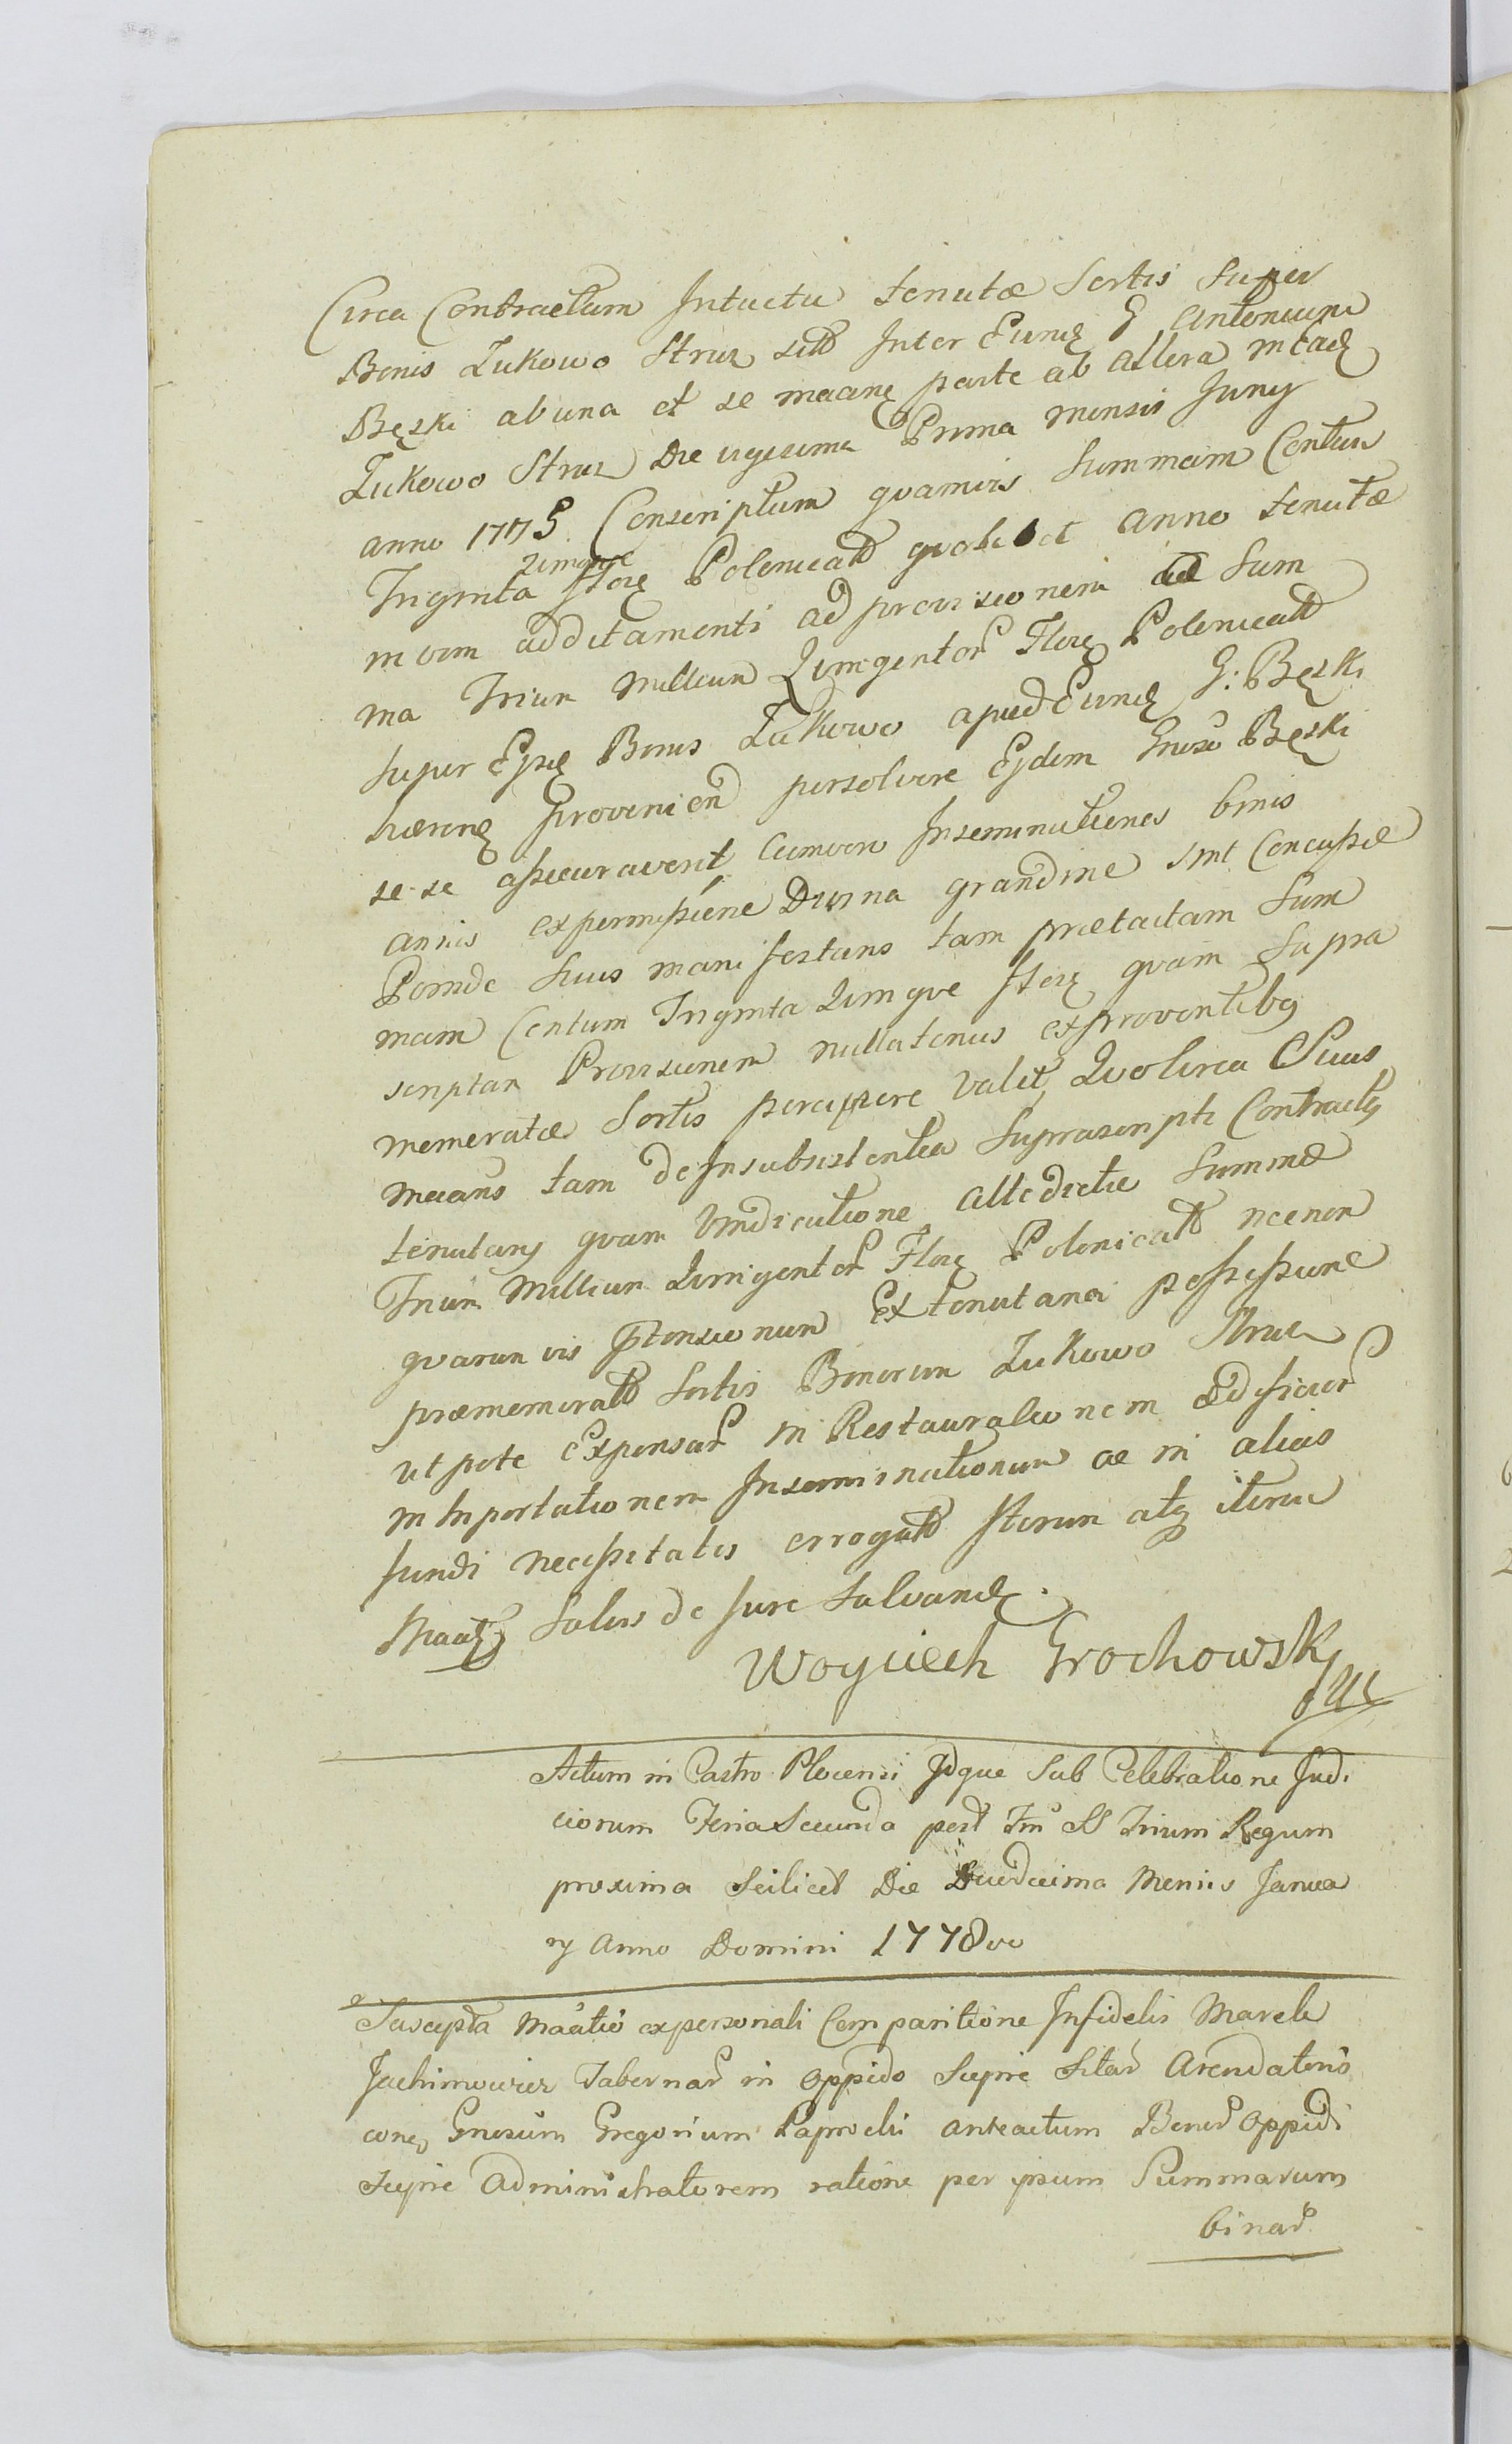 Circa Contractum Intuctu tenutæ Sortis Super
Bonis Zukowo Strus sitt Inter Eund G Antonium
Bęski ab una et se maanę parte ab altera in eâd
Zukowo Strus Die vigesima Prima mensis Juny
anno 1775 Conscriptum qvamvis Summam Centum
Quinque
Triginta florę Polonicatt qvolibet anno tenutæ
in vim additamenti ad provisionem a Sum
ma Trium Millium Quingentorˀ Florę Polonicatt
super Eisdę Bonis Zukowo apud Eund G: Bęski
hæreng provenienˀ persolvere Eidem Gnoso Bęski
se se assecuraverit, Cum vero Inseminationes binis
annis ex permissione Divina grandine sint Concussæ
Proinde Suus manifestans tam prætactam Sum
mam Centum Triginta Quinque florę qvam Supra
scriptam Provisionem nullatenus ex proventibq
memoratæ Sortis percipere valet, Quocirca Suus
maans tam de Insubsistentia Suprascripti Contractq
tenutarij qvam Vindicatione antedictæ Summæ
Trium Millium Quingentorˀ Florę Polonicatt necnon
qvarum vis ptensionum Ex tenutaria possessione
præmemoratt Sortis Bonorum Zukowo Strus
utpote Expensarˀ in Restaurationem ædificiorˀ
in Importationem Inseminationum ac in alias
fundi necessitates errogatt Iterum atq iterum
Maatq Salvis de Jure Salvand.
Woyciech Grochowski
mp
Actum in Castro Plocensi Idque Sub Celebratione Judi
ciorum Feria Secunda post Fm SS Trium Regum
proxima Scilicet Die Duodecima Mensis Janua
rij Anno Domini 1778vo
Suscepta Maatio ex personali Comparitione Infidelis Marek
Jachimowicz Tabernarˀ in oppido Sepie Sitarˀ Arendatoris
conę Gnosum Gregorium Paprocki anteactum Bonorˀ Oppidi
Siepie Administratorem ratione per ipsum Summarum
binarˀ